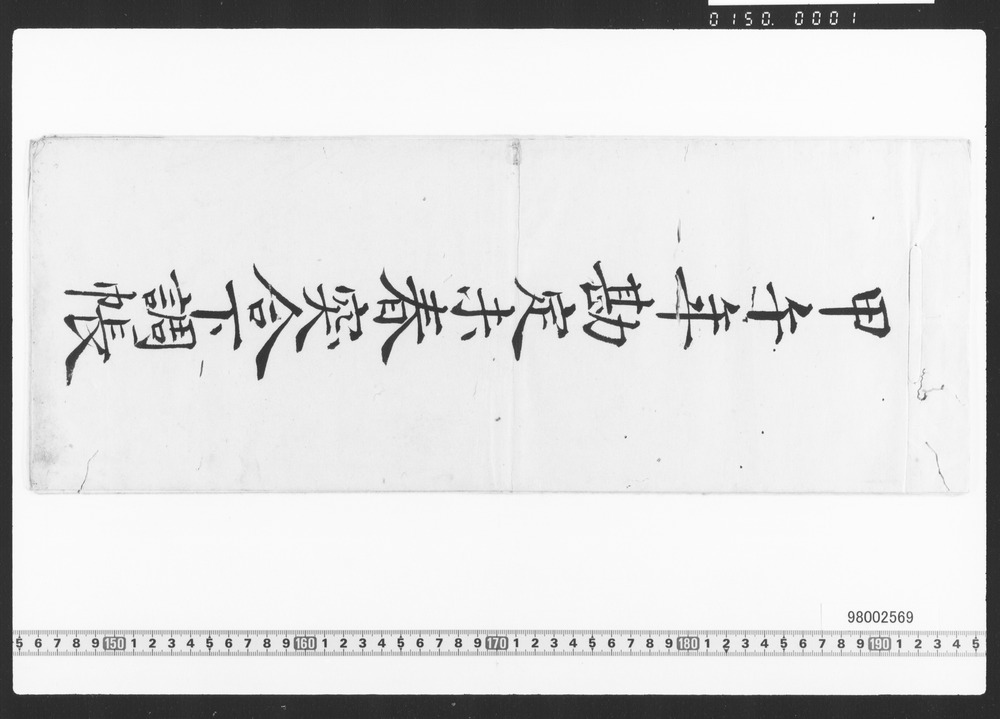 0150. 0001
甲午年勘定未春突合下調帳
98002569
5 6 7 8 9 150 1 2 3 4 5 6 7 8 9 160 1 2 3 4 5 6 7 8 9 170 1 2 3 4 5 6 7 8 9 180 1 2 3 4 5 6 7 8 9 190 1 2 3 4 5